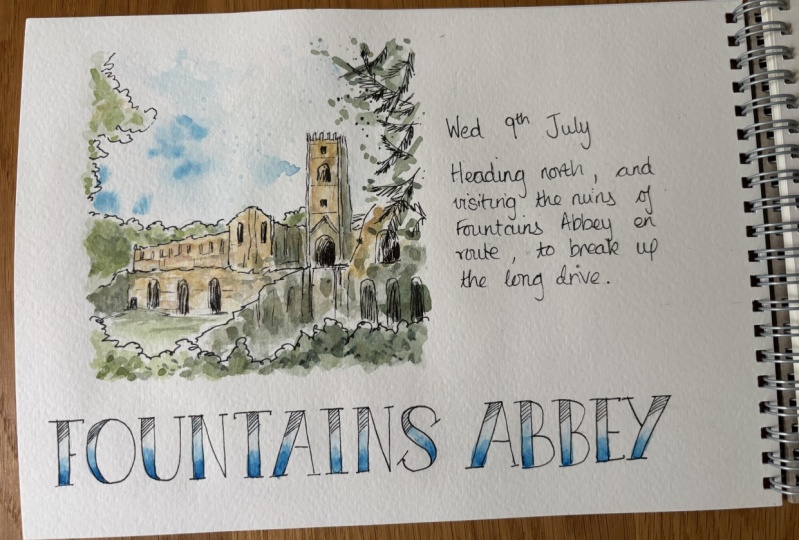 Wed 9th July
Heading north, and
visiting the ruins of
Fountains Abbey en
route, to break up
the long drive.
FOUNTAINS ABBEY